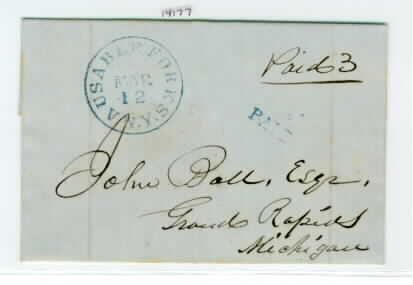 14177
AUSABLE FORKS
MAR
12
N.Y.
Paid 3
PAID
John Ball, Esqr.
Grand Rapids
Michigan